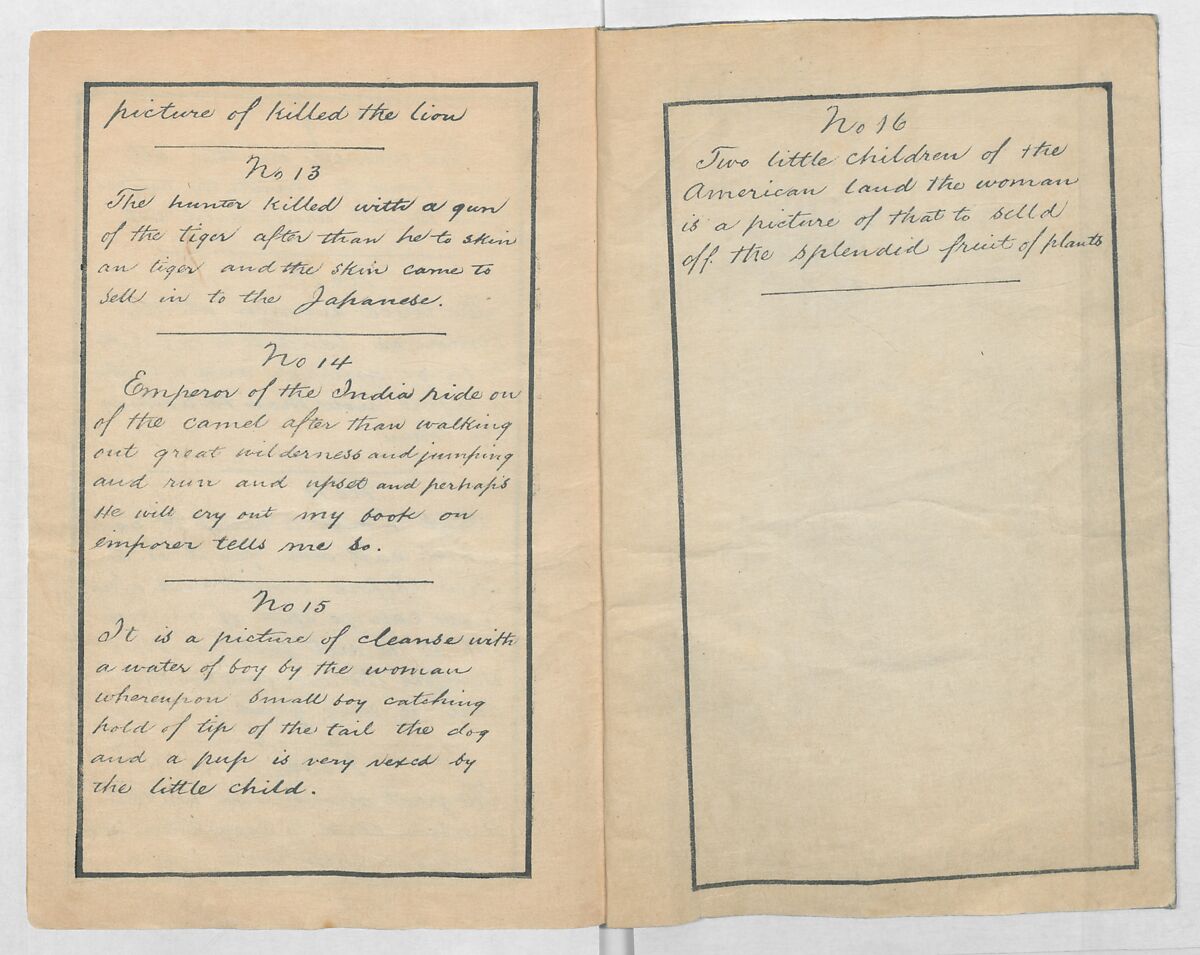 picture of killed the lion
No 13
The hunter killed with a gun
of the tiger after than he to skin
an tiger and the skin came to
sell in to the Japanese.
No 14
Emperor of the India ride on
of the camel after than walking
out great wilderness and jumping
and run and upset and perhaps
He will cry out my book on
emporer tells me so.
No 15
It is a picture of cleanse with
a water of boy by the woman
whereupon small boy catching
hold of tip of the tail the dog
and a pup is very vexed by
the little child.
No 16
Two little children of the
American land the woman
is a picture of that to selld
off the splendid fruit of plants